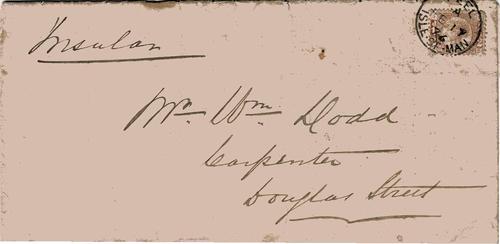 Insular
PEEL
ISLE OF MAN
Mr. Wm. Dodd
Carpenter
Douglas Street